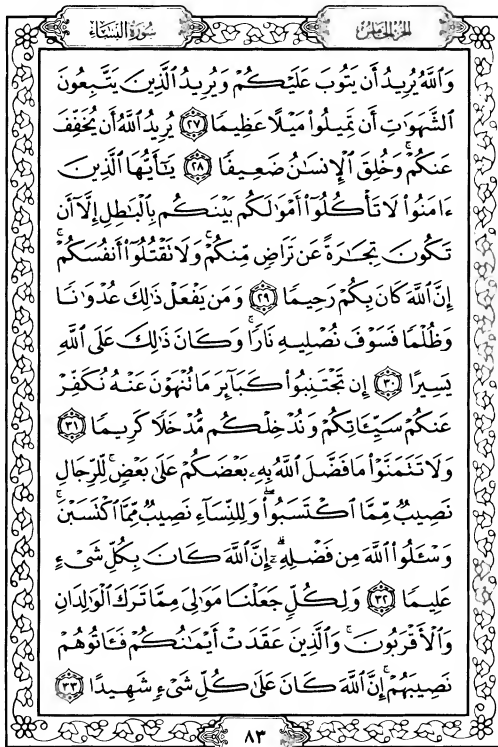 سُورَةُ النِّسَاءِ
الجُزْءُ الخَامِسُ
وَاللَّهُ يُرِيدُ أَن يَتُوبَ عَلَيْكُمْ وَيُرِيدُ الَّذِينَ يَتَّبِعُونَ
الشَّهَوَاتِ أَن تَمِيلُوا۟ مَيْلًا عَظِيمًا ٢٧ يُرِيدُ اللَّهُ أَن يُخَفِّفَ
عَنكُمْ ۚ وَخُلِقَ الْإِنسَٰنُ ضَعِيفًا ٢٨ يَٰٓأَيُّهَا الَّذِينَ
ءَامَنُوا۟ لَا تَأْكُلُوٓا۟ أَمْوَٰلَكُم بَيْنَكُم بِالْبَٰطِلِ إِلَّآ أَن
تَكُونَ تِجَٰرَةً عَن تَرَاضٍ مِّنكُمْ ۚ وَلَا تَقْتُلُوٓا۟ أَنفُسَكُمْ ۚ
إِنَّ اللَّهَ كَانَ بِكُمْ رَحِيمًا ٢٩ وَمَن يَفْعَلْ ذَٰلِكَ عُدْوَٰنًا
وَظُلْمًا فَسَوْفَ نُصْلِيهِ نَارًا ۚ وَكَانَ ذَٰلِكَ عَلَى اللَّهِ
يَسِيرًا ٣٠ إِن تَجْتَنِبُوا۟ كَبَآئِرَ مَا تُنْهَوْنَ عَنْهُ نُكَفِّرْ
عَنكُمْ سَيِّـَٔاتِكُمْ وَنُدْخِلْكُم مُّدْخَلًا كَرِيمًا ٣١
وَلَا تَتَمَنَّوْا۟ مَا فَضَّلَ اللَّهُ بِهِۦ بَعْضَكُمْ عَلَىٰ بَعْضٍ ۚ لِّلرِّجَالِ
نَصِيبٌ مِّمَّا اكْتَسَبُوا۟ ۖ وَلِلنِّسَآءِ نَصِيبٌ مِّمَّا اكْتَسَبْنَ ۚ
وَسْـَٔلُوا۟ اللَّهَ مِن فَضْلِهِۦٓ ۗ إِنَّ اللَّهَ كَانَ بِكُلِّ شَىْءٍ
عَلِيمًا ٣٢ وَلِكُلٍّ جَعَلْنَا مَوَٰلِىَ مِمَّا تَرَكَ الْوَٰلِدَانِ
وَالْأَقْرَبُونَ ۚ وَالَّذِينَ عَقَدَتْ أَيْمَٰنُكُمْ فَـَٔاتُوهُمْ
نَصِيبَهُمْ ۚ إِنَّ اللَّهَ كَانَ عَلَىٰ كُلِّ شَىْءٍ شَهِيدًا ٣٣
٨٣